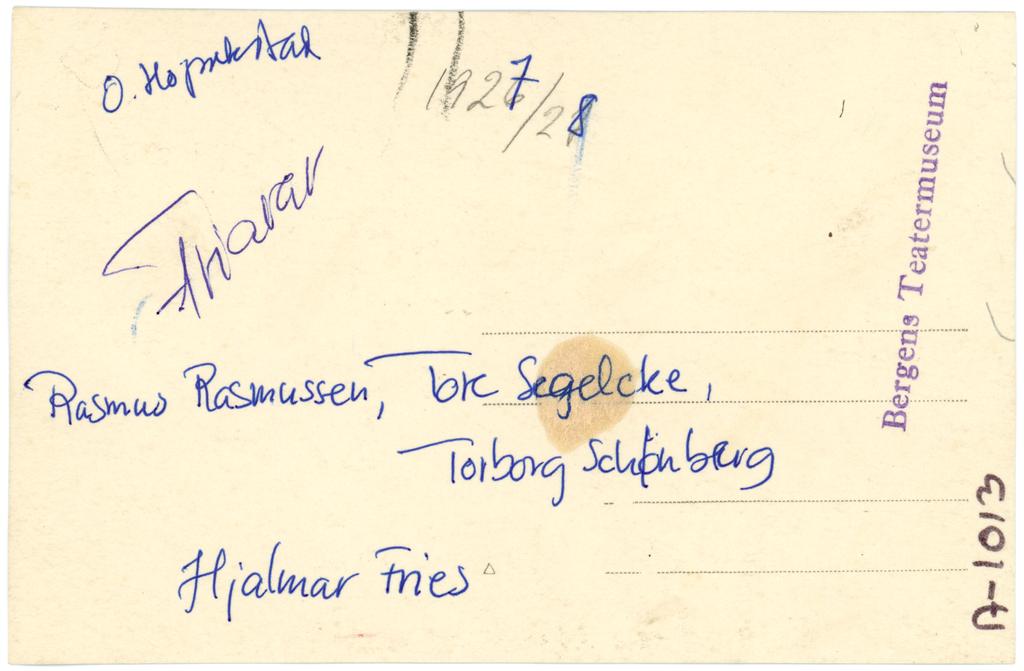 O. Hoprekstad
1927/28
Friarar
Rasmus Rasmussen, Tore Segelcke,
Torborg Schønberg
Hjalmar Fries
Bergens Teatermuseum
A-1013